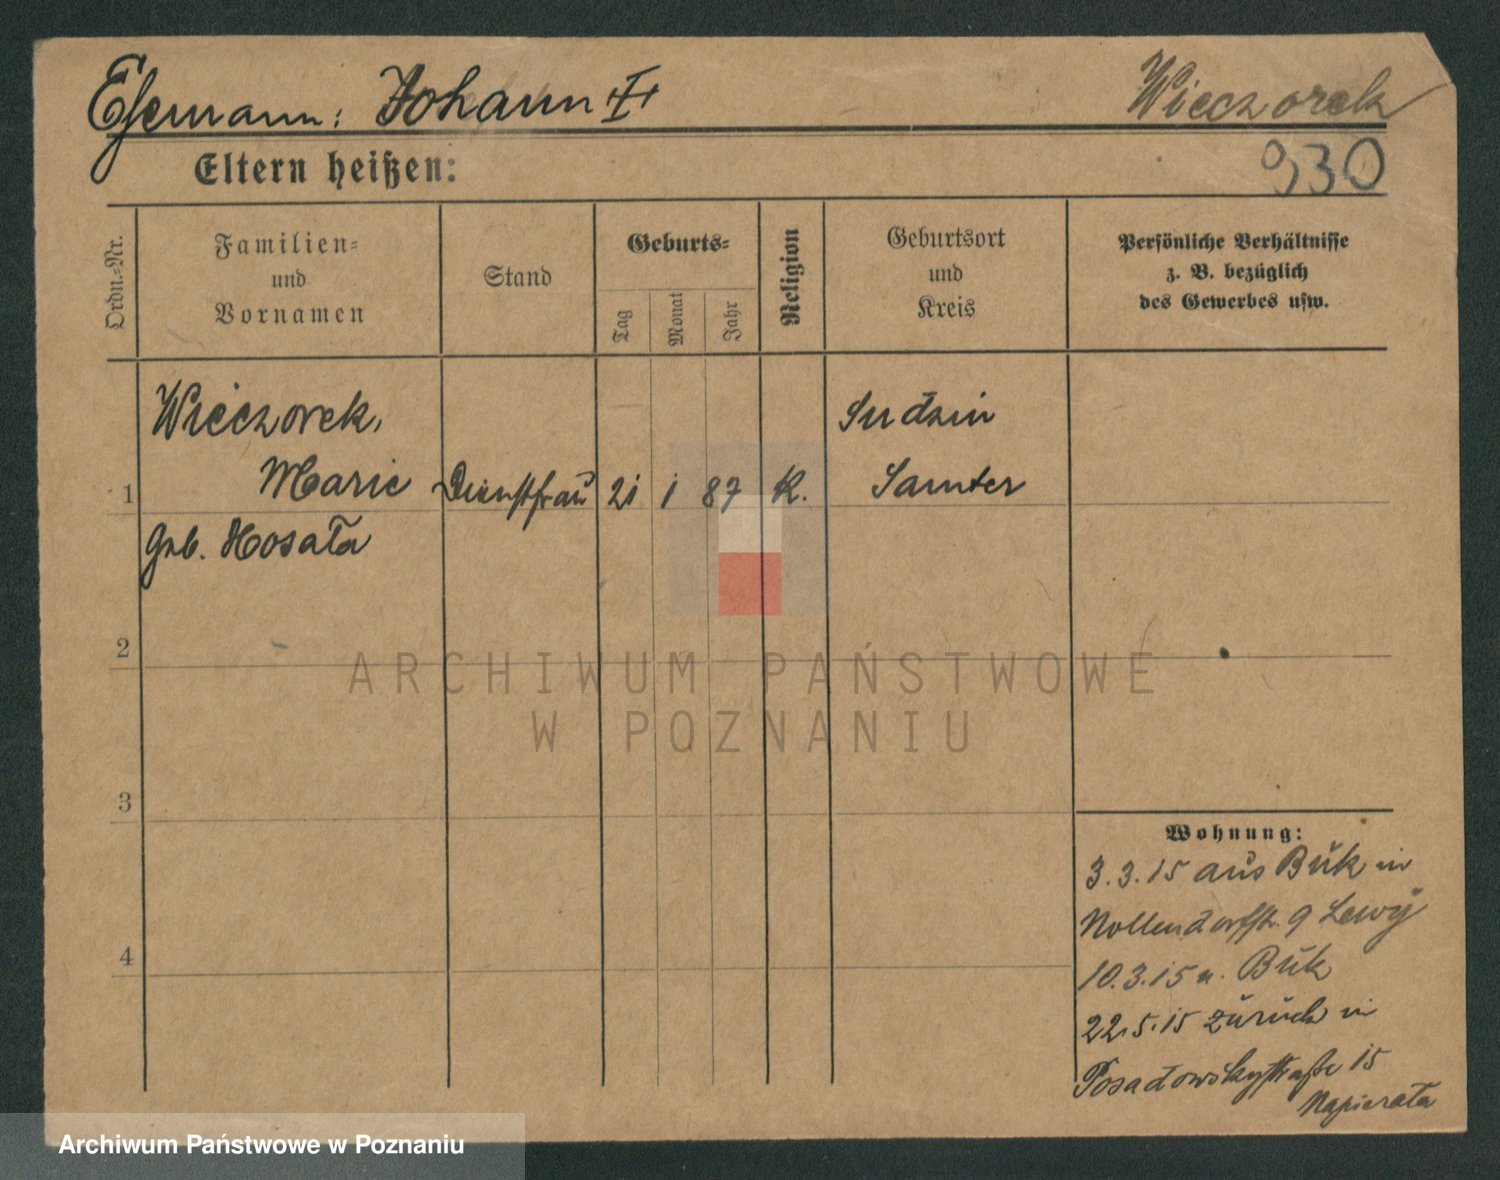 Ehemann: Johann
Wieczorek
930
Eltern heißen:
Ordn.-Nr.
Familien-
und
Vornamen
Stand
Geburts-
Tag
Monat
Jahr
Religion
Geburtsort
und
Kreis
Persönliche Verhältnisse
z. B. bezüglich
des Gewerbes usw.
1
Wieczorek,
Marie
geb. Hosała
Dienstfrau
21
1
87
K.
Sudzin
Samter
2
3
4
Wohnung:
3.3.15 aus Buk in
Nollendorfstr. 9 Lewy
10.3.15 n. Buk
22.5.15 zurück in
Posadowskystraße 15
Napierała
ARCHIWUM PAŃSTWOWE
W POZNANIU
Archiwum Państwowe w Poznaniu